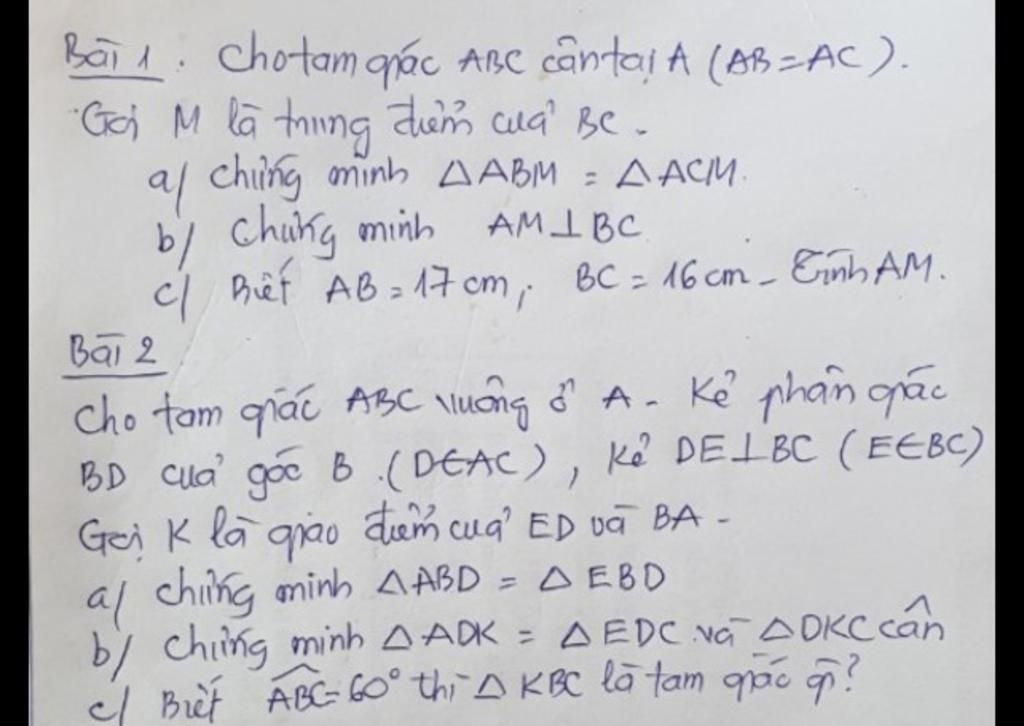 Bài 1. Cho tam giác ABC cân tại A (AB = AC).
Gọi M là trung điểm của BC.
a/ Chứng minh △ABM = △ACM.
b/ Chứng minh AM⊥BC
c/ Biết AB = 17 cm, BC = 16 cm. Tính AM.
Bài 2
Cho tam giác ABC vuông ở A. Kẻ phân giác
BD của góc B (D∈AC), kẻ DE⊥BC (E∈BC)
Gọi K là giao điểm của ED và BA.
a/ Chứng minh △ABD = △EBD
b/ Chứng minh △ADK = △EDC và △DKC cân
c/ Biết \widehat{ABC} = 60° thì △KBC là tam giác gì?